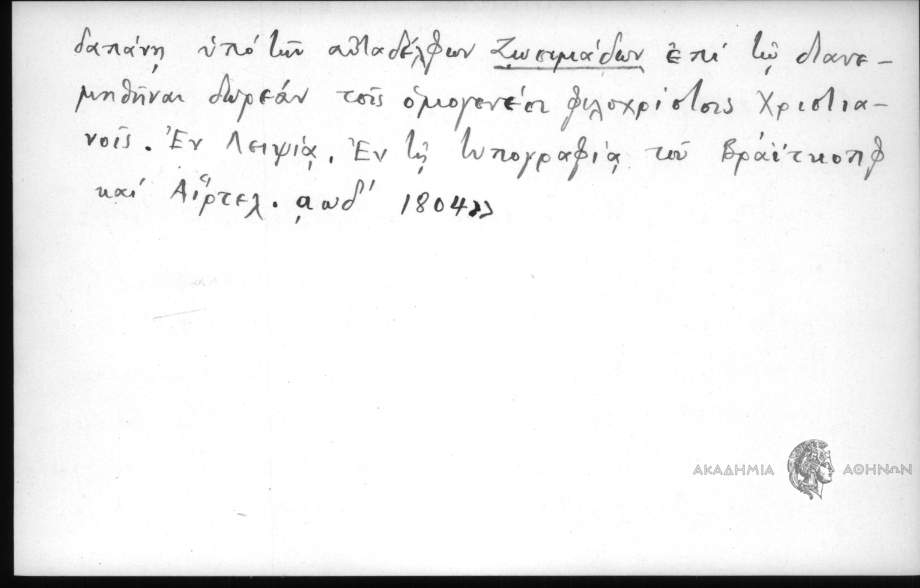 δαπάνῃ ὑπό τῶν αὐταδέλφων Ζωσιμιάδων ἐπί τῷ διανε-
μηθῆναι δωρεάν τοῖς ὁμογενέσι φιλοχρίστοις Χριστια-
νοῖς. Ἐν Λειψίᾳ. Ἐν τῇ τυπογραφίᾳ τοῦ Βράϊτκοπφ
καί Αἵρτελ. αωδ' 1804»
ΑΚΑΔΗΜΙΑ ΑΘΗΝΩΝ